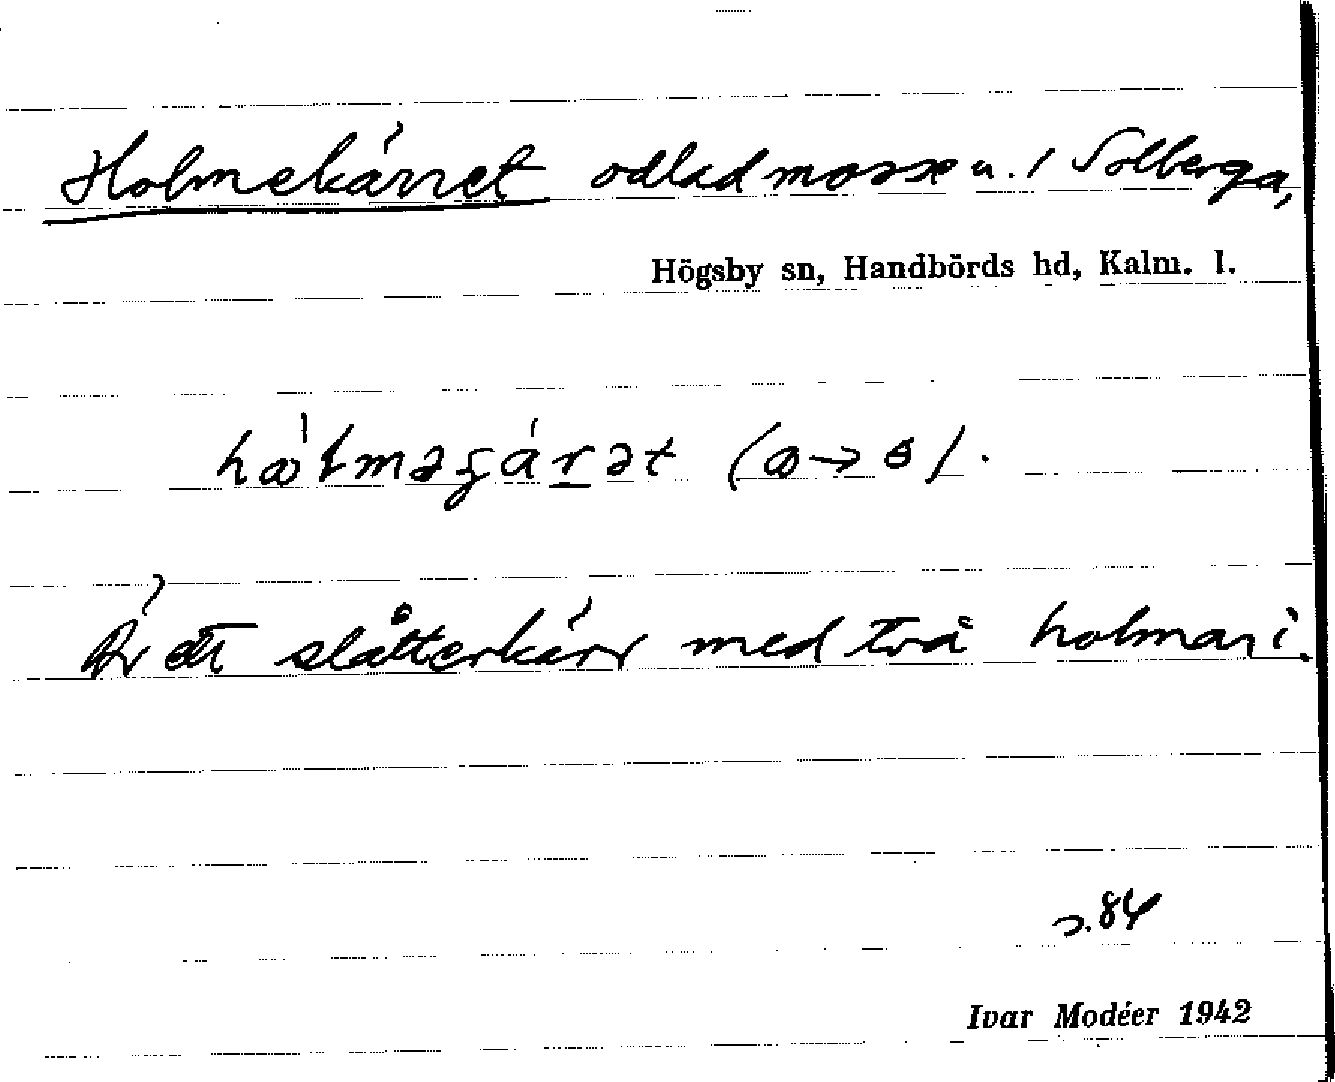 Holmekärret odlad mosse u. / Solberga,
Högsby sn, Handbörds hd, Kalm. l.
Är ett slåtterkärr med två holmar i.
s. 84
Ivar Modéer 1942